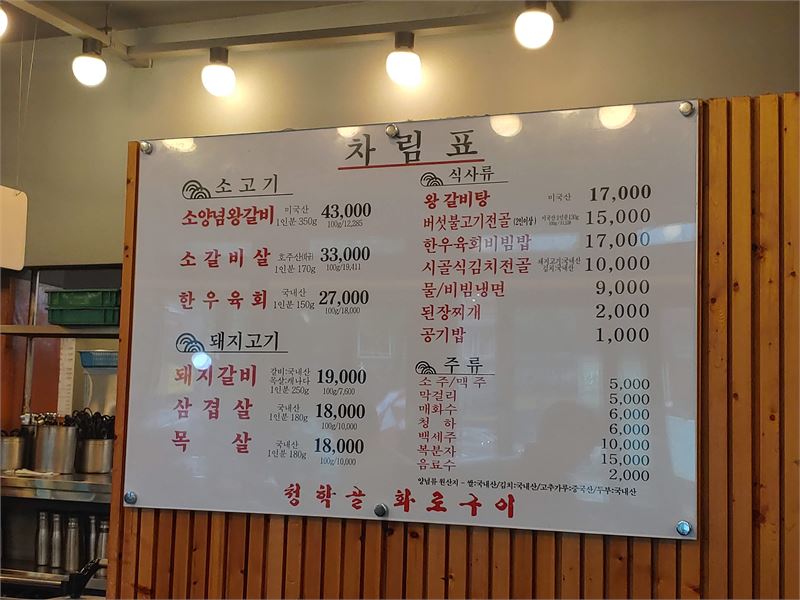 차림표
소고기
소양념왕갈비 미국산 1인분 350g 43,000
100g/12,285
소갈비살 호주산 1인분 170g 33,000
100g/19,411
한우육회 국내산 1인분 150g 27,000
100g/18,000
돼지고기
돼지갈비 갈비:국내산 목살:캐나다 1인분 250g 19,000
100g/7,600
삼겹살 국내산 1인분 180g 18,000
100g/10,000
목살 국내산 1인분 180g 18,000
100g/10,000
식사류
왕갈비탕 미국산 17,000
버섯불고기전골 (2인이상) 15,000
한우육회비빔밥 17,000
시골식김치전골 돼지고기:국내산 김치:국내산 10,000
물/비빔냉면 9,000
된장찌개 2,000
공기밥 1,000
주류
소주/맥주 5,000
막걸리 5,000
매화수 6,000
청하 6,000
백세주 10,000
복분자 15,000
음료수 2,000
양념류 원산지 - 쌀:국내산/김치:국내산/고추가루:중국산/두부:국내산
청학골 화로구이